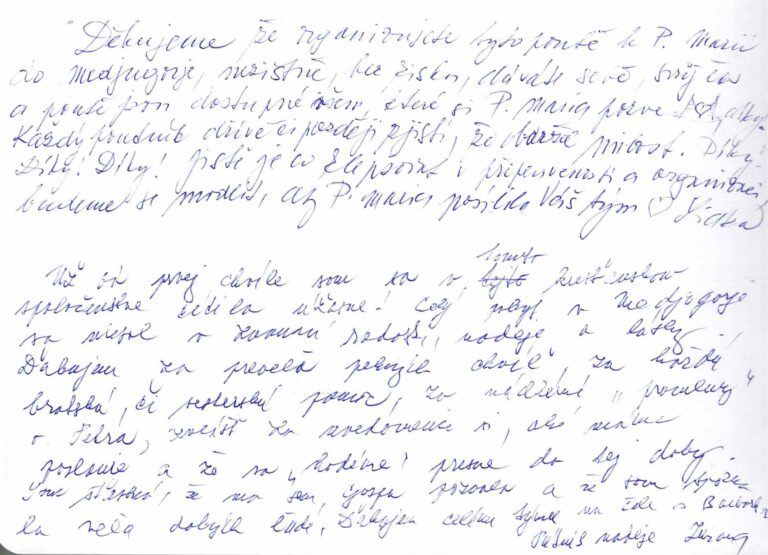 Děkujeme že organizujete tyto poutě k P. Marii
do Medjugorje, nezištně, bez zisku, dáváte sebe, svůj čas
a poutě jsou dostupné všem, které si P. Maria pozve
Každý poutník dříve či později zjistí, že obdržel milost. Díky!
Díky! Díky! Jistě je co zlepšovat v připravenosti a organizaci
budeme se modlit, ať P. Maria posiluje Váš tým ♡
Už od prvej chvíle som sa v tomto kresťanskom
spoločenstve cítila úžasne! Celý pobyt v Medjugorji
sa niesol v znamení radosti, nádeje a lásky.
Ďakujem za prevelа pekných chvíľ, za každú
bratskú, či sesterskú pomoc, za nádherné „promluvy"
o. Petra, zvlášť za uvedomenie si, aké máme
poslanie a že sa „hodíme" presne do tej doby.
Som šťastná, že ma sem Gospa pozvala a že som spozna-
la veľa dobrých ľudí. Ďakujem celému týmu na čele s